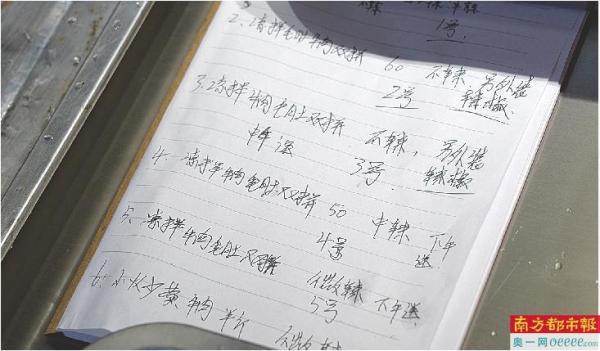 中辣
1号
2、凉拌毛肚牛肉双拼 60 不辣 另外装
2号 辣椒
3、凉拌牛肉毛肚双拼 不辣，另外装
3号 辣椒
4、凉拌牛肉毛肚双拼 50 中辣 下午
4号 送
5、凉拌牛肉毛肚双拼 微辣 下午送
5号
6、小火少黄牛肉 半斤 微辣
南方都市報
奥一网oeeee.com